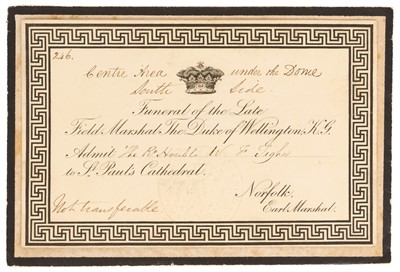 246.
Centre Area under the Dome
South Side
Funeral of the Late
Field Marshal The Duke of Wellington, K.G.
Admit The Rt. Honble W. F. Tighe
to St. Paul's Cathedral.
Norfolk,
Earl Marshal.
Not transferable